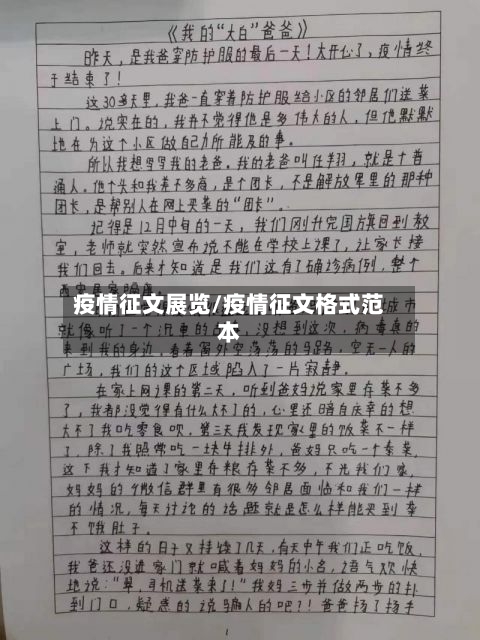 《我的“大白”爸爸》
昨天，是我爸穿防护服的最后一天！太开心了，疫情终
于结束了！
这30多天里，我爸一直穿着防护服给小区的邻居们送菜
上门。说实在的，我并不觉得他是多伟大的人，但他默默
地在为这个小区做自己力所能及的事。
所以我想写写我的老爸。我的老爸叫任羽，就是个普
通人。他个头和我差不多高，是个团长，不是解放军里的那种
团长，是帮别人在网上买菜的“团长”。
记得是12月中旬的一天，我们刚升完国旗回到教
室，老师就突然宣布说不能在学校上课了，让家长接
我们回去。后来才知道是我们这有了确诊病例，整个
西安
疫情征文展览/疫情征文格式范
本
城市
就像听了一个
没想到这次，病毒真的
来到我的身边，看着窗外空荡荡的马路，空无一人的
广场，我们的这个区域陷入了一片寂静。
在家上网课的第二天，听到爸妈说家里存菜不多
了，我都没觉得有什么大不了的，心里还暗自庆幸的想
大不了我吃零食呗，第三天我发现家里的饭菜不一样
了，除了我照常吃一块牛排外，爸妈只吃一个素菜，
这下我才知道了家里存粮存菜不多，不光我们家，
妈妈的个微信群里有很多邻居面临和我们一样
的情况，每天讨论的话题就是怎么样能买到菜
不饿肚子。
这样的日子又持续了几天，有天中午我们正吃饭，
我爸还没进家门就喊着妈妈的小名，语气欢快
地说：“翠，司机送菜来了！”我妈三步并做两步的扑
到门口，疑惑的说骗人的吧？！爸爸扬了扬手
1